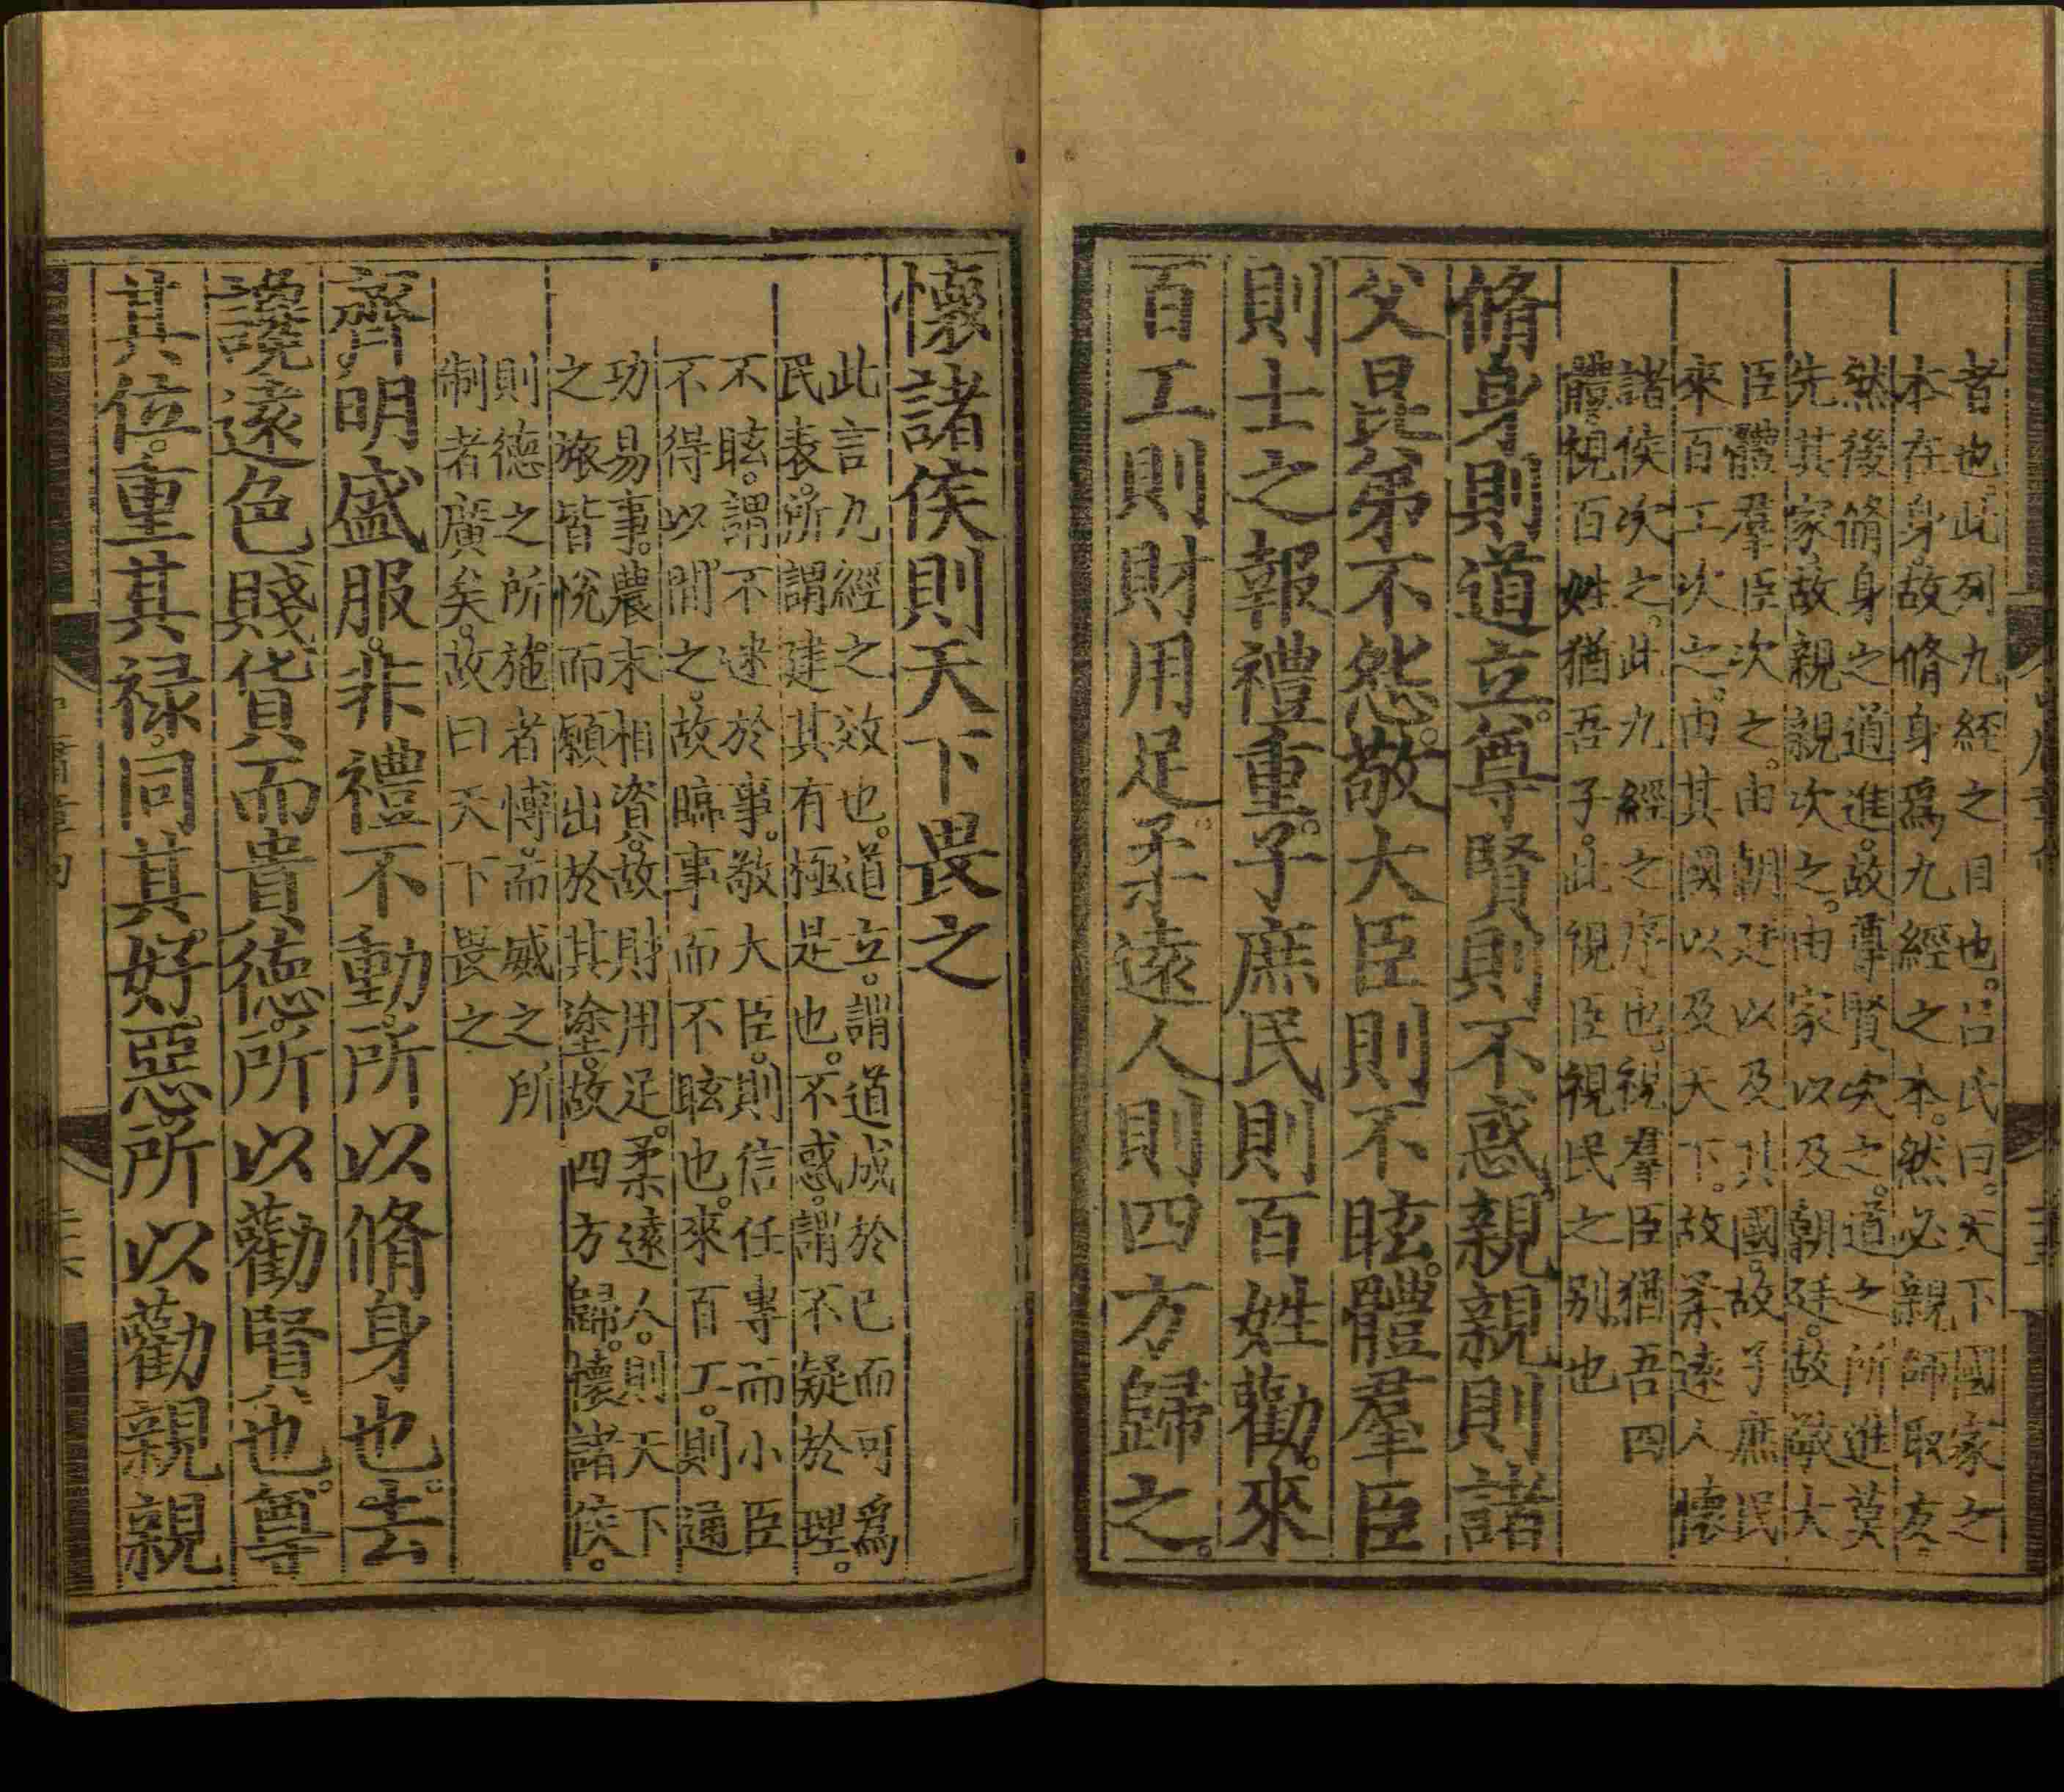 者也。此列九經之目也。呂氏曰。天下國家之
本在身。故脩身爲九經之本。然必親師取友
然後脩身之道進。故尊賢次之。道之所進莫
先其家。故親親次之。由家以及朝廷。故敬大
臣體羣臣次之。由朝廷以及其國。故子庶民
來百工次之。由其國以及天下。故柔遠人懷
諸侯次之。此九經之序也。視羣臣猶吾四
體。視百姓猶吾子。此視臣視民之別也
脩身則道立。尊賢則不惑。親親則諸
父昆弟不怨。敬大臣則不眩。體羣臣
則士之報禮重。子庶民則百姓勸。來
百工則財用足。柔遠人則四方歸之。
懷諸侯則天下畏之
此言九經之效也。道立。謂道成於己而可爲
民表。所謂建其有極是也。不惑。謂不疑於理。
不眩。謂不迷於事。敬大臣。則信任專而小臣
不得以間之。故臨事而不眩也。來百工。則通
功易事。農末相資。故財用足。柔遠人。則天下
之旅皆悅而願出於其塗。故四方歸。懷諸侯。
則德之所施者博。而威之所
制者廣矣。故曰天下畏之
齊明盛服。非禮不動。所以脩身也。去
讒遠色。賤貨而貴德。所以勸賢也。尊
其位。重其祿。同其好惡。所以勸親親